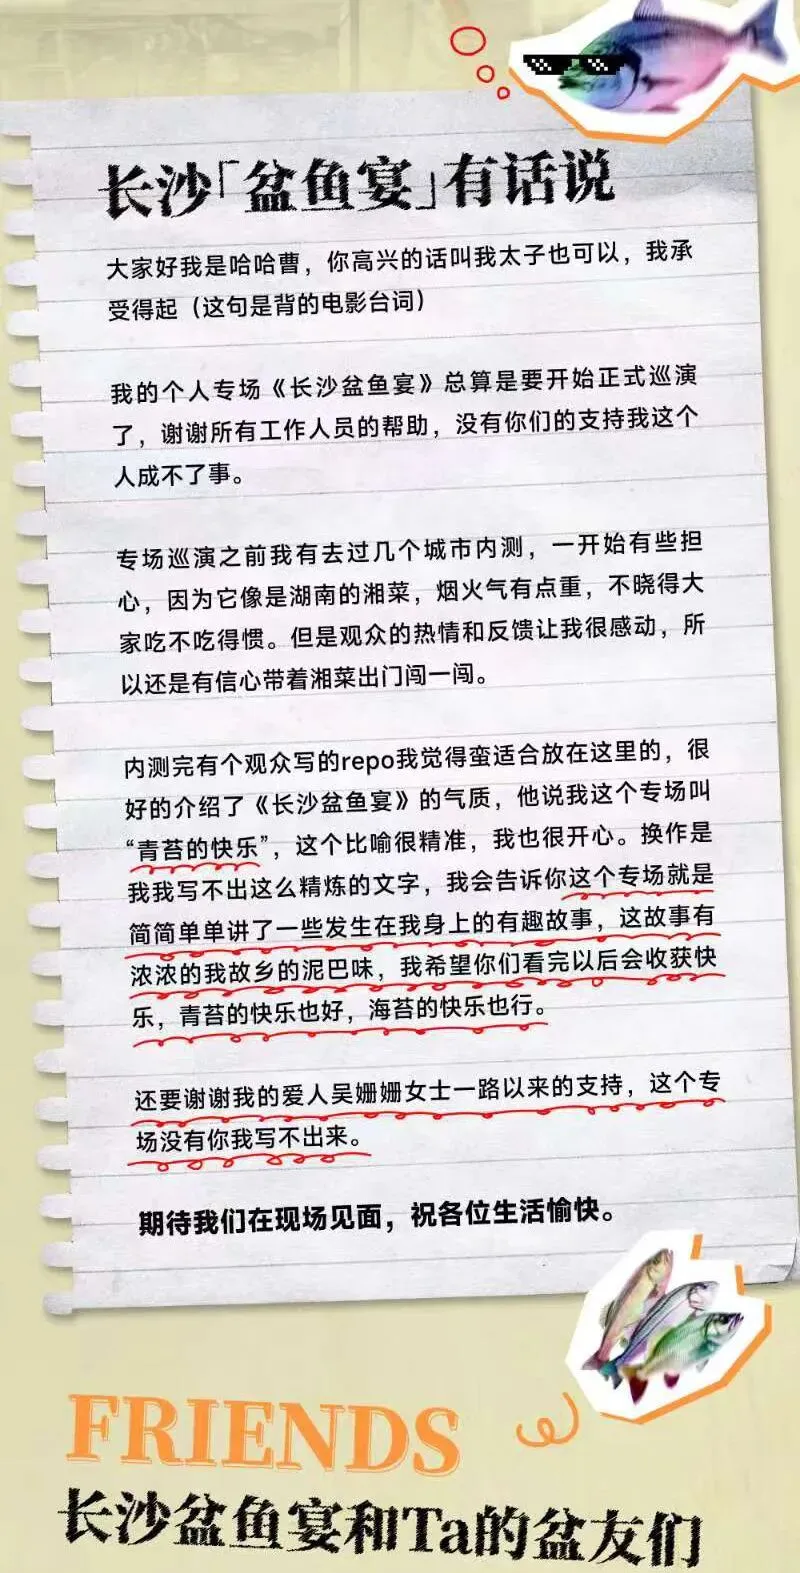 长沙「盆鱼宴」有话说
大家好我是哈哈曹，你高兴的话叫我太子也可以，我承
受得起（这句是背的电影台词）
我的个人专场《长沙盆鱼宴》总算是要开始正式巡演
了，谢谢所有工作人员的帮助，没有你们的支持我这个
人成不了事。
专场巡演之前我有去过几个城市内测，一开始有些担
心，因为它像是湖南的湘菜，烟火气有点重，不晓得大
家吃不吃得惯。但是观众的热情和反馈让我很感动，所
以还是有信心带着湘菜出门闯一闯。
内测完有个观众写的repo我觉得蛮适合放在这里的，很
好的介绍了《长沙盆鱼宴》的气质，他说我这个专场叫
“青苔的快乐”，这个比喻很精准，我也很开心。换作是
我我写不出这么精炼的文字，我会告诉你这个专场就是
简简单单讲了一些发生在我身上的有趣故事，这故事有
浓浓的我故乡的泥巴味，我希望你们看完以后会收获快
乐，青苔的快乐也好，海苔的快乐也行。
还要谢谢我的爱人吴姗姗女士一路以来的支持，这个专
场没有你我写不出来。
期待我们在现场见面，祝各位生活愉快。
FRIENDS
长沙盆鱼宴和Ta的盆友们